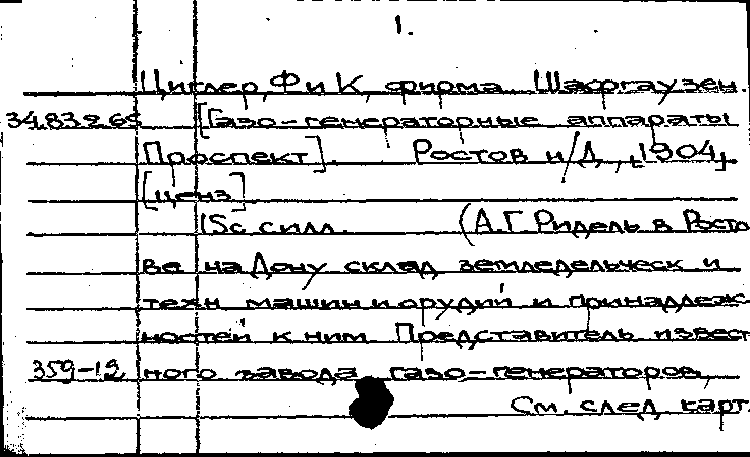 1.
Циглер, Ф и К, фирма Шафгаузен.
34.83.2.65 [Газо-генераторные аппараты
Проспект]. Ростов н/Д, [1904].
[ценз]
15с силл. (А.Г. Ридель в Росто
ве на Дону склад земледельческ и
техн машин и орудий и принадлеж
ностей к ним Представитель извест
359-12 ного завода газо-генераторов,
См. след карт.